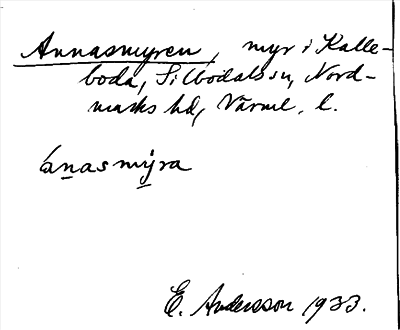 Annasmyren, myr i Kalle-
boda, Silbodals sn, Nord-
marks hd, Värml. l.
ánasmy̆ra
E. Andersson 1933.